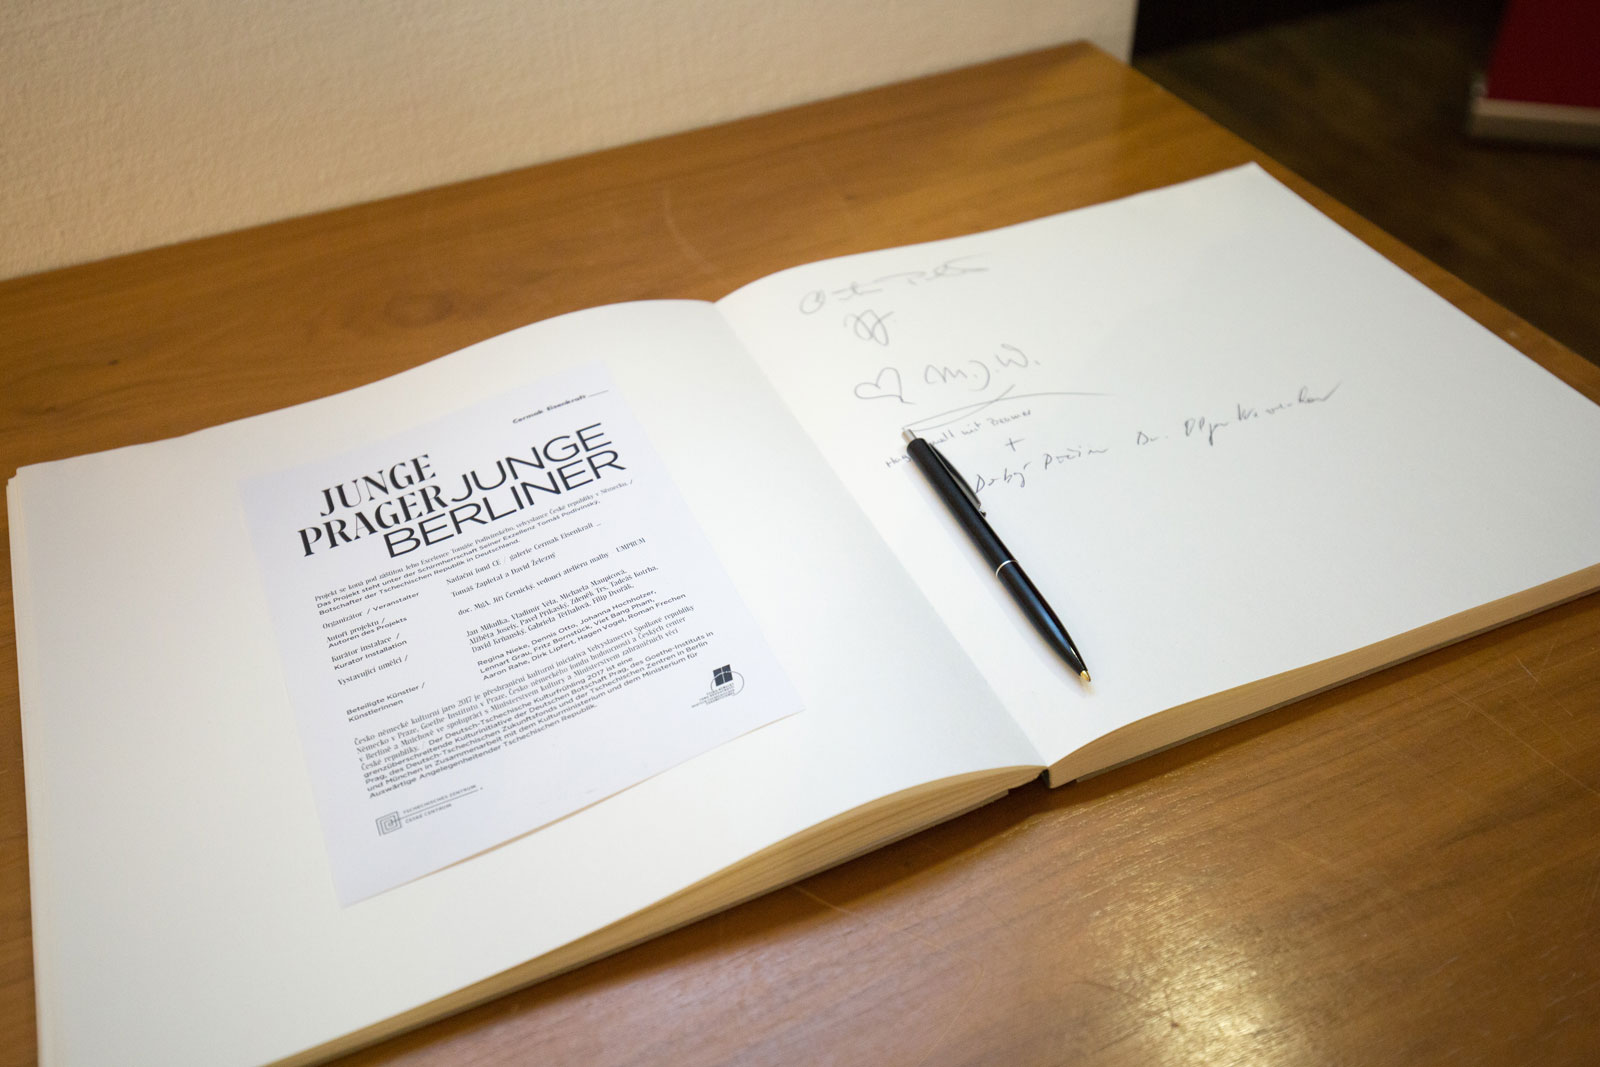 Cermak Eisenkraft
JUNGE JUNGE
PRAGER BERLINER
Projekt se koná pod záštitou Jeho Excelence Tomáše Podivínského, velvyslance České republiky v Německu. /
Das Projekt steht unter der Schirmherrschaft Seiner Exzellenz Tomáš Podivínský,
Botschafter der Tschechischen Republik in Deutschland.
Organizátor / Veranstalter
Nadační fond CE / galerie Cermak Eisenkraft
Autoři projektu /
Autoren des Projekts
Tomáš Zapletal a David Železný
Kurátor instalace /
Kurator Installation
doc. MgA. Jiří Černický, vedoucí ateliéru malby UMPRUM
Vystavující umělci /
Jan Mikulka, Vladimír Véla, Michaela Maupicová,
Alžběta Josefy, Pavel Příkaský, Zdeněk Trs, Tadeáš Kotrba,
David Krňanský, Gabriela Těthalová, Filip Dvořák,
Beteiligte Künstler /
Künstlerinnen
Regina Nieke, Dennis Otto, Johanna Hochholzer,
Lennart Grau, Fritz Bornstück, Viet Bang Pham,
Aaron Rahe, Dirk Lipfert, Hagen Vogel, Roman Frechen
Česko německé kulturní jaro 2017 je přeshraniční kulturní iniciativa Velvyslanectví Spolkové republiky
Německo v Praze, Goethe Institutu v Praze, Česko německého fondu budoucnosti a Českých center
v Berlíně a Mnichově ve spolupráci s Ministerstvem kultury a Ministerstvem zahraničních věcí
České republiky. / Der Deutsch-Tschechische Kulturfrühling 2017 ist eine
grenzüberschreitende Kulturinitiative der Deutschen Botschaft Prag, des Goethe-Instituts in
Prag, des Deutsch-Tschechischen Zukunftsfonds und der Tschechischen Zentren in Berlin
und München in Zusammenarbeit mit dem Kulturministerium und dem Ministerium für
Auswärtige Angelegenheitender Tschechischen Republik.
TSCHECHISCHES ZENTRUM
ČESKÉ CENTRUM
M.J.W.
mit
+